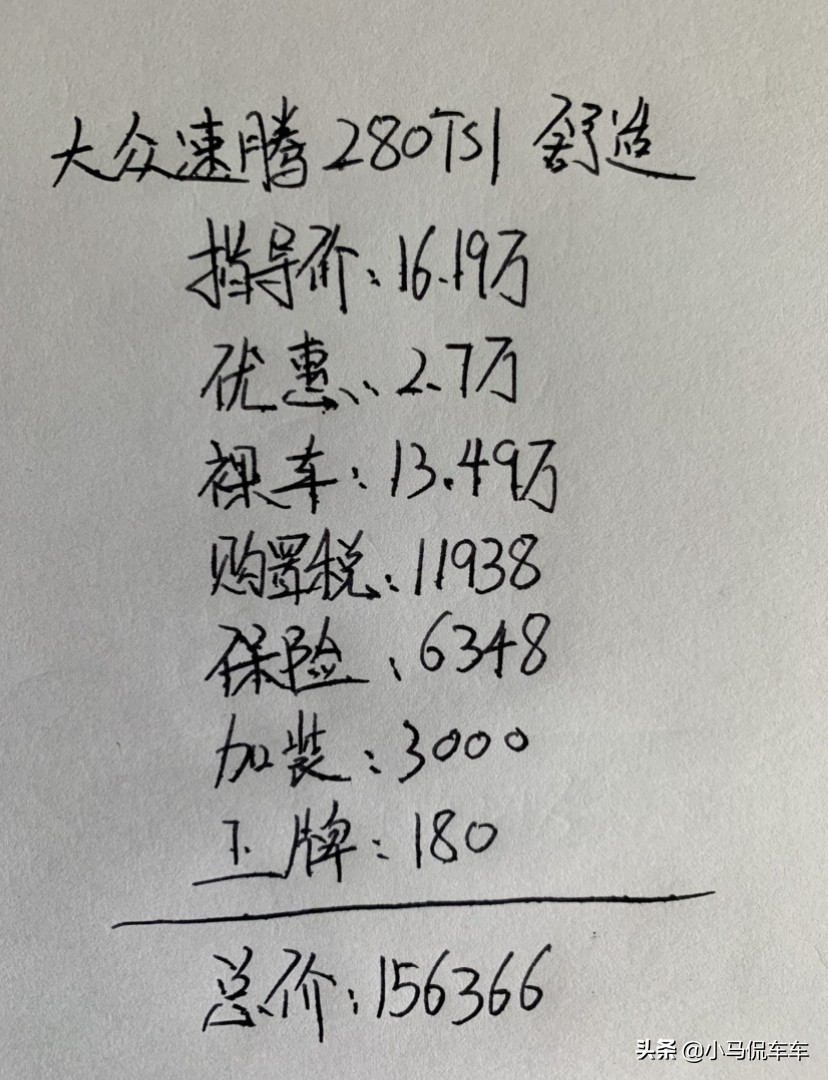 大众速腾280TSI 舒适
指导价:16.19万
优惠:2.7万
裸车:13.49万
购置税:11938
保险:6348
加装:3000
上牌:180
总价:156366
头条 @小马侃车车